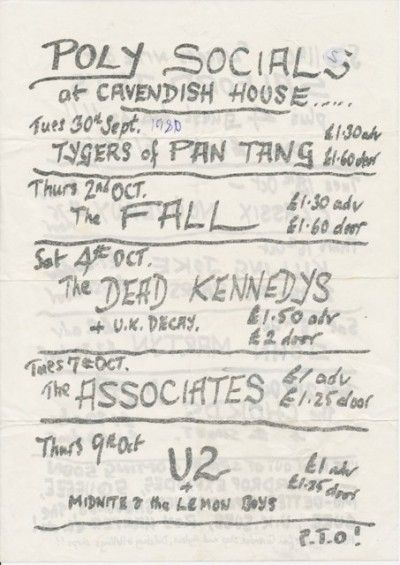 POLY SOCIALS
at CAVENDISH HOUSE......
Tues 30th Sept. 1980 £1.30 adv
TYGERS of PAN TANG £1.60 door
Thurs 2nd OCT. £1.30 adv
The FALL £1.60 door
Sat 4th OCT.
The DEAD KENNEDYS
+ U.K. DECAY. £1.50 adv
£2 door
Tues 7th OCT. £1 adv
The ASSOCIATES £1.25 door
Thurs 9th Oct
U2 £1 adv
+ £1.25 door
MIDNITE & the LEMON BOYS
P.T.O!